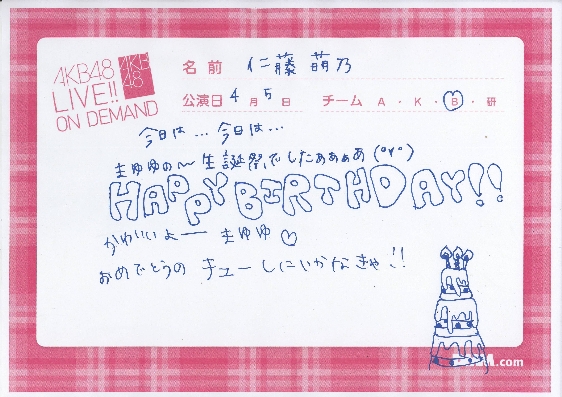 AKB48
LIVE!!
ON DEMAND
AKB
48
名前 仁藤萌乃
公演日 4月5日 チーム A・K・B・研
今日は…今日は…
まゆゆの〜生誕祭でしたぁぁぁぁ(°∀°)
HAPPY BERTHDAY!!
かわいいよー まゆゆ♡
おめでとうの チューしにいかなきゃ!!
M.com